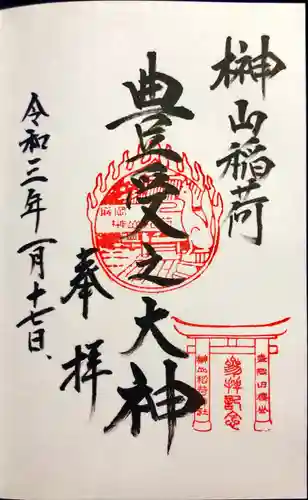 榊山稲荷
豊受之大神
奉拝
令和三年一月十七日、
参拝記念
盛岡旧桜山
榊山稲荷神社